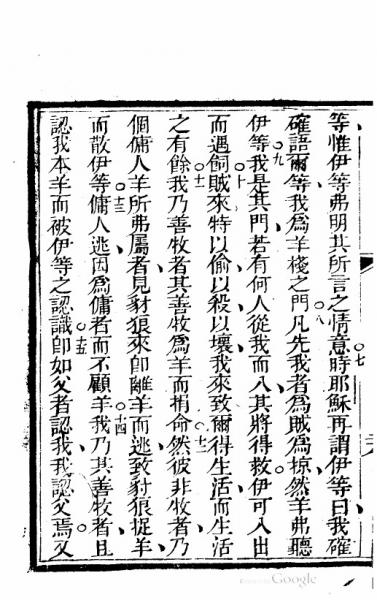 等惟伊等弗明其所言之情意○七時耶穌再謂伊等曰我確
確語爾等我爲羊棧之門○八凡先我者爲賊爲掠然羊弗聽
伊等○九我是其門若有何人從我而入其將得救伊可入出
而遇飼○十賊來特以偷以殺以壞我來致爾得生活而生活
之有餘○十一我乃善牧者其善牧爲羊而捐命○十二然彼非牧者乃
個傭人羊所弗屬者見豺狼來卽離羊而逃致豺狼捉羊
而散伊等○十三傭人逃因爲傭者而不顧羊○十四我乃其善牧者且
認我本羊而被伊等之認識○十五卽如父者認我我認父焉又
Google